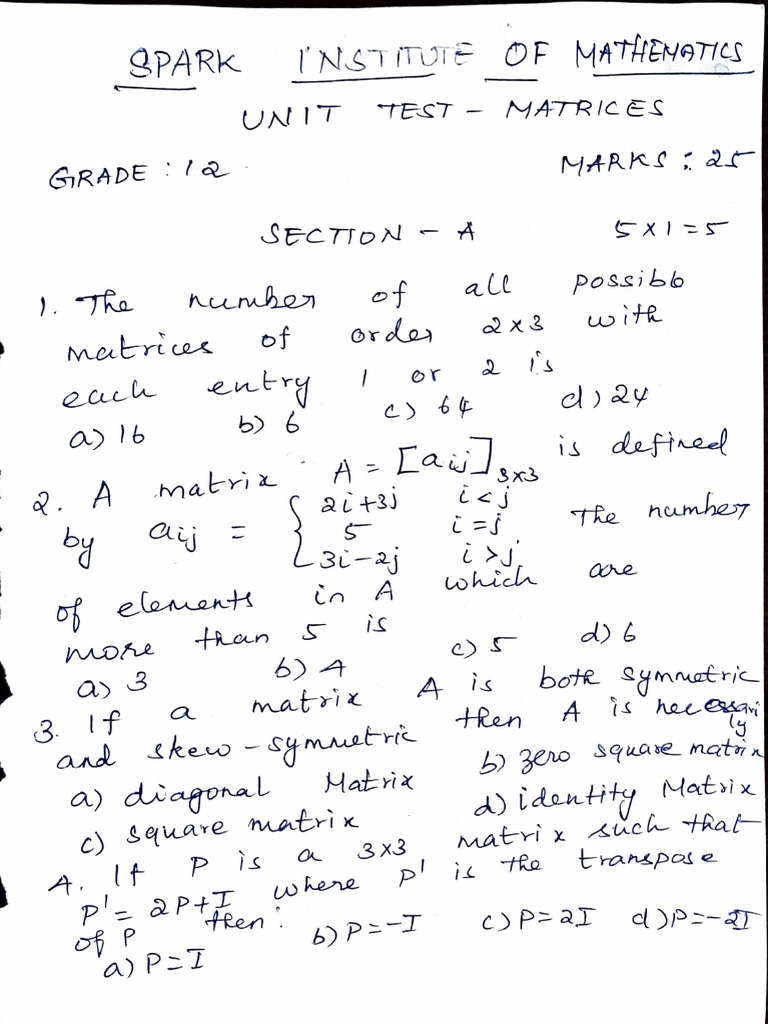 SPARK INSTITUTE OF MATHEMATICS
UNIT TEST - MATRICES
GRADE : 12 MARKS : 25
SECTION - A 5 x 1 = 5
1. The number of all possibb
matrices of order 2x3 with
each entry 1 or 2 is
a) 16 b) 6 c) 64 d) 24
2. A matrix A = [aij]3x3 is defined
by aij = { 2i+3j i<j
5 i=j The number
3i-2j i>j
of elements in A which are
more than 5 is
a) 3 b) 4 c) 5 d) 6
3. If a matrix A is both symmetric
and skew-symmetric then A is necessarily
a) diagonal Matrix b) zero square matrix
c) square matrix d) identity Matrix
4. If P is a 3x3 matrix such that
P' = 2P+I where P' is the transpose
of P then:
a) P=I b) P=-I c) P=2I d) P=-2I